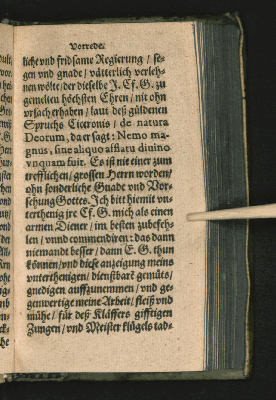 Vorrede.
liche vnd fridsame Regierung / se-
gen vnd gnade / vätterlich verleh-
nen wölte / der dieselbe J. Cf. G. zu
gemelten höchsten Ehren / nit ohn
vrsach erhaben / laut deß güldenen
Spruchs Ciceronis / de natura
Deorum, da er sagt: Nemo ma-
gnus, sine aliquo afflatu diuino
vnquam fuit. Es ist nie einer zum
trefflichen / grossen Herrn worden /
ohn sonderliche Gnade vnd Vor-
sehung Gottes. Ich bitt hiemit vn-
terthenig jre Cf. G. mich als einen
armen Diener / im besten zubefeh-
len / vnnd commendiren: das dann
niemandt besser / dann E. G. thun
können / vnd diese anzeigung meins
vnterthenigen / dienstbarẽ gemüts /
gnedigen auffzunemmen / vnd ge-
genwertige meine Arbeit / fleiß vnd
mühe / für deß Kläffers gifftigen
Zungen / vnd Meister klügels tad-